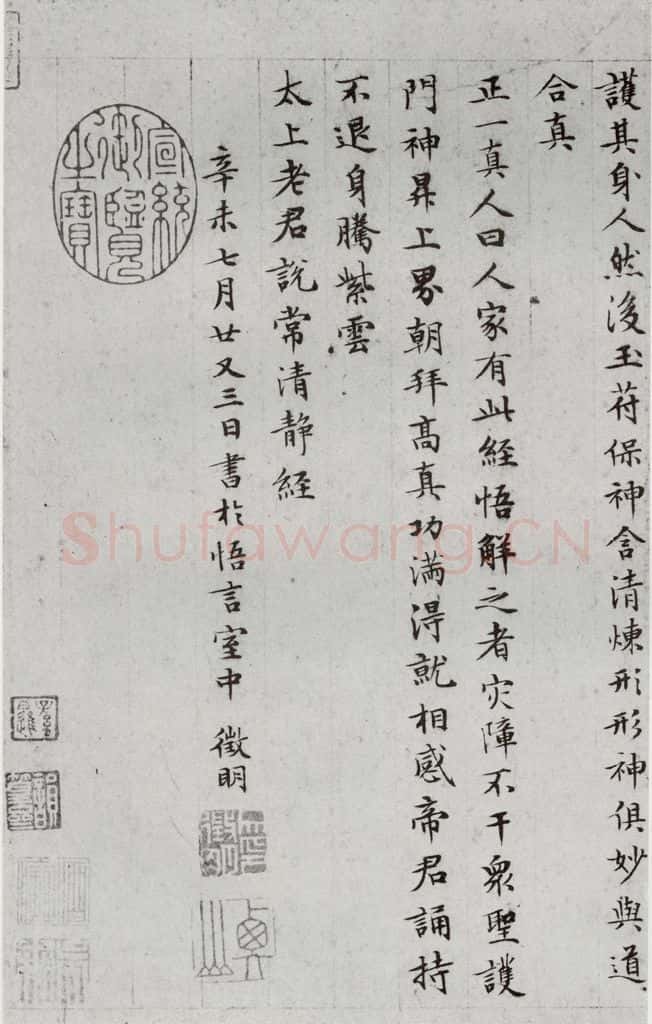 護其身人然後玉苻保神含清煉形形神俱妙與道
合真
正一真人曰人家有此経悟解之者灾障不干衆聖護
門神昇上界朝拜髙真功满淂就相感帝君誦持
不退身騰紫雲
太上老君說常清静経
辛未七月廿又三日書於悟言室中 徵明
宣統御覽之寶
Shufawang.CN